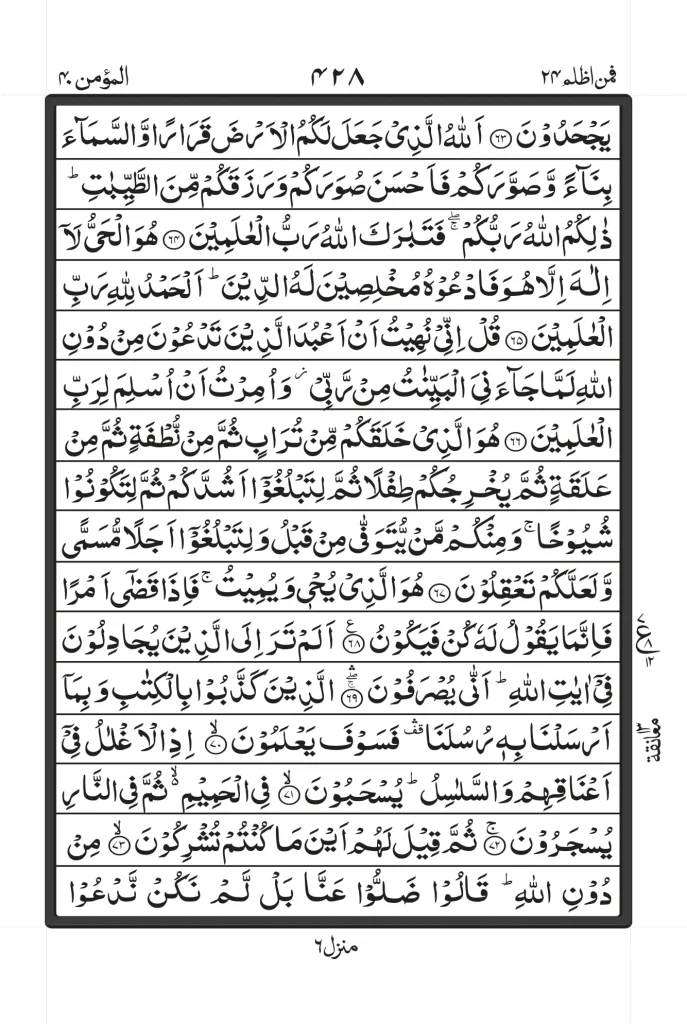 فمن اظلم ۲۴ ۴۲۸ المؤمن ۴۰
يَجۡحَدُوۡنَ ﴿۶۳﴾ اَللّٰهُ الَّذِىۡ جَعَلَ لَكُمُ الۡاَرۡضَ قَرَارًا وَّالسَّمَآءَ
بِنَآءً وَّصَوَّرَكُمۡ فَاَحۡسَنَ صُوَرَكُمۡ وَرَزَقَكُمۡ مِّنَ الطَّيِّبٰتِ ؕ
ذٰلِكُمُ اللّٰهُ رَبُّكُمۡ ۖۚ فَتَبٰرَكَ اللّٰهُ رَبُّ الۡعٰلَمِيۡنَ ﴿۶۴﴾ هُوَ الۡحَىُّ لَاۤ
اِلٰهَ اِلَّا هُوَ فَادۡعُوۡهُ مُخۡلِصِيۡنَ لَهُ الدِّيۡنَ ؕ اَلۡحَمۡدُ لِلّٰهِ رَبِّ
الۡعٰلَمِيۡنَ ﴿۶۵﴾ قُلۡ اِنِّىۡ نُهِيۡتُ اَنۡ اَعۡبُدَ الَّذِيۡنَ تَدۡعُوۡنَ مِنۡ دُوۡنِ
اللّٰهِ لَمَّا جَآءَنِىَ الۡبَيِّنٰتُ مِنۡ رَّبِّىۡ ز وَاُمِرۡتُ اَنۡ اُسۡلِمَ لِرَبِّ
الۡعٰلَمِيۡنَ ﴿۶۶﴾ هُوَ الَّذِىۡ خَلَقَكُمۡ مِّنۡ تُرَابٍ ثُمَّ مِنۡ نُّطۡفَةٍ ثُمَّ مِنۡ
عَلَقَةٍ ثُمَّ يُخۡرِجُكُمۡ طِفۡلًا ثُمَّ لِتَبۡلُغُوۡۤا اَشُدَّكُمۡ ثُمَّ لِتَكُوۡنُوۡا
شُيُوۡخًا ۚ وَمِنۡكُمۡ مَّنۡ يُّتَوَفّٰى مِنۡ قَبۡلُ وَلِتَبۡلُغُوۡۤا اَجَلًا مُّسَمًّى
وَّلَعَلَّكُمۡ تَعۡقِلُوۡنَ ﴿۶۷﴾ هُوَ الَّذِىۡ يُحۡىٖ وَيُمِيۡتُ ۚ فَاِذَا قَضٰٓى اَمۡرًا
فَاِنَّمَا يَقُوۡلُ لَهٗ كُنۡ فَيَكُوۡنُ ﴿۶۸﴾ ع اَلَمۡ تَرَ اِلَى الَّذِيۡنَ يُجَادِلُوۡنَ
ع ۷ ۸ ۱۲
فِىۡۤ اٰيٰتِ اللّٰهِ ؕ اَنّٰى يُصۡرَفُوۡنَ ﴿۶۹﴾ ۛۖۚ الَّذِيۡنَ كَذَّبُوۡا بِالۡكِتٰبِ وَبِمَاۤ
اَرۡسَلۡنَا بِهٖ رُسُلَنَا ۛقف فَسَوۡفَ يَعۡلَمُوۡنَ ۙ﴿۷۰﴾ اِذِ الۡاَغۡلٰلُ فِىۡۤ
معانقة ۱۳
اَعۡنَاقِهِمۡ وَالسَّلٰسِلُ ؕ يُسۡحَبُوۡنَ ۙ﴿۷۱﴾ فِى الۡحَمِيۡمِ ۙ ثُمَّ فِى النَّارِ
يُسۡجَرُوۡنَ ۚ﴿۷۲﴾ ثُمَّ قِيۡلَ لَهُمۡ اَيۡنَ مَا كُنۡتُمۡ تُشۡرِكُوۡنَ ۙ﴿۷۳﴾ مِنۡ
دُوۡنِ اللّٰهِ ؕ قَالُوۡا ضَلُّوۡا عَنَّا بَلۡ لَّمۡ نَكُنۡ نَّدۡعُوۡا
منزل ۶